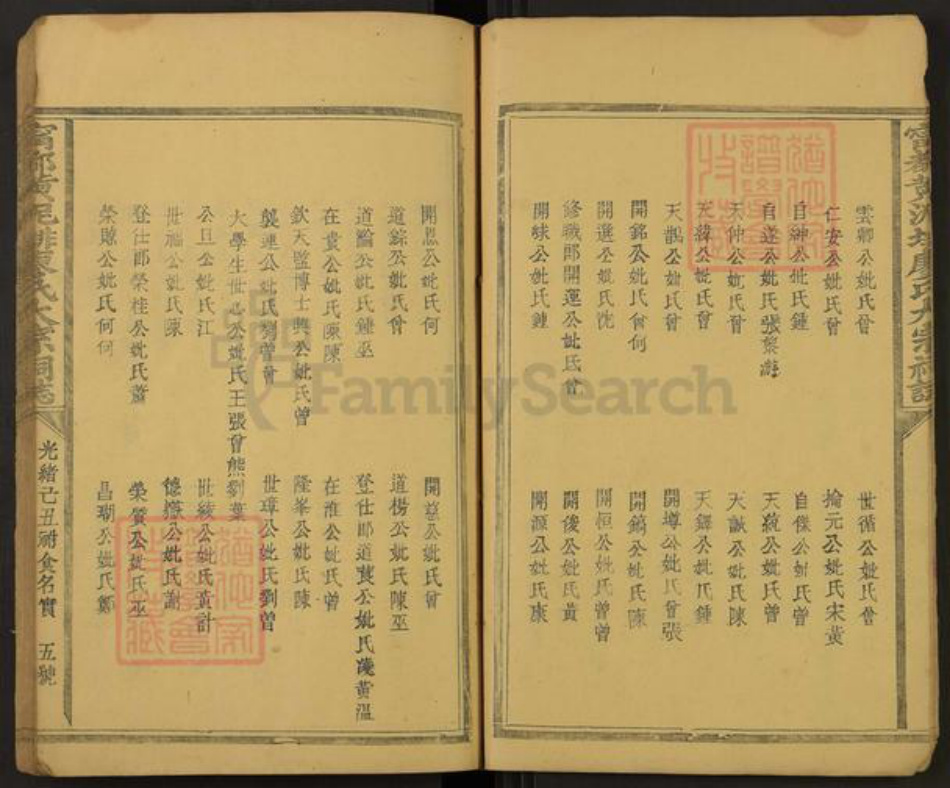 雲卿公妣氏曾
仁安公妣氏曾
自神公妣氏鍾
自遂公妣氏張黎游
天仲公妣氏曾
天緯公妣氏曾
天鵲公妣氏曾
開銘公妣氏曾何
開選公妣氏沈
修職郎開運公妣氏曾
開峽公妣氏鍾
世循公妣氏曾
掄元公妣氏宋黃
自傑公妣氏曾
天疏公妣氏曾
天誠公妣氏陳
天鐸公妣氏鍾
開墫公妣氏曾張
開鎬公妣氏陳
開恒公妣氏曾曾
開俊公妣氏黃
開源公妣氏康
開恩公妣氏何
道綜公妣氏曾
道論公妣氏鍾巫
在貴公妣氏陳陳
欽天監博士興公妣氏曾
襲璉公妣氏劉曾曾
大學生世 公妣氏王張曾熊劉葉
公旦公妣氏江
世福公妣氏陳
登仕郎榮桂公妣氏蕭
榮賜公妣氏何何
開慈公妣氏曾
道楊公妣氏陳巫
登仕郎道 公妣氏 黃溫
在淮公妣氏曾
隆峯公妣氏陳
世璋公妣氏劉曾
世綾公妣氏黃計
公妣氏謝
榮質公妣氏巫
昌瑚公妣氏鄭
光緒己丑祔食名實 五號
FamilySearch